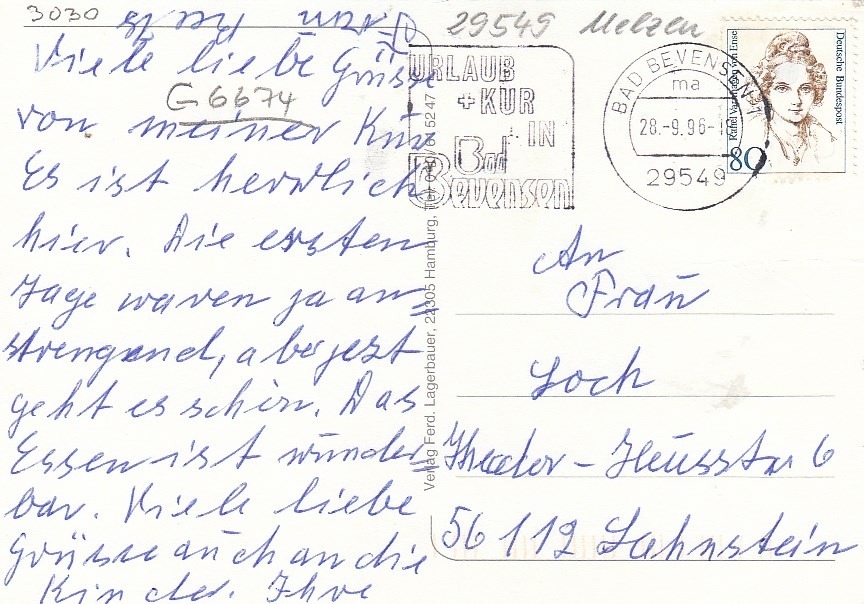 3030
29549 Melzen
Viele liebe Grüsse
von meiner Kur
G 6674
Es ist herrlich
hier. Die ersten
Tage waren ja an=
strengend, aber jezt
geht es schön. Das
Essen ist wunder=
bar. Viele liebe
Grüsse auch an die
Kinder. Ihre
Frau
URLAUB
+KUR
IN
Bad
Bevensen
BAD BEVENSEN 1
ma
28.-9.96-1
29549
Rahel Varnhagen von Ense
Deutsche Bundespost
80
Verlag Ferd. Lagerbauer, 22305 Hamburg,
An
Frau
Loch
Theodor-Heusstr 6
56112 Lahnstein